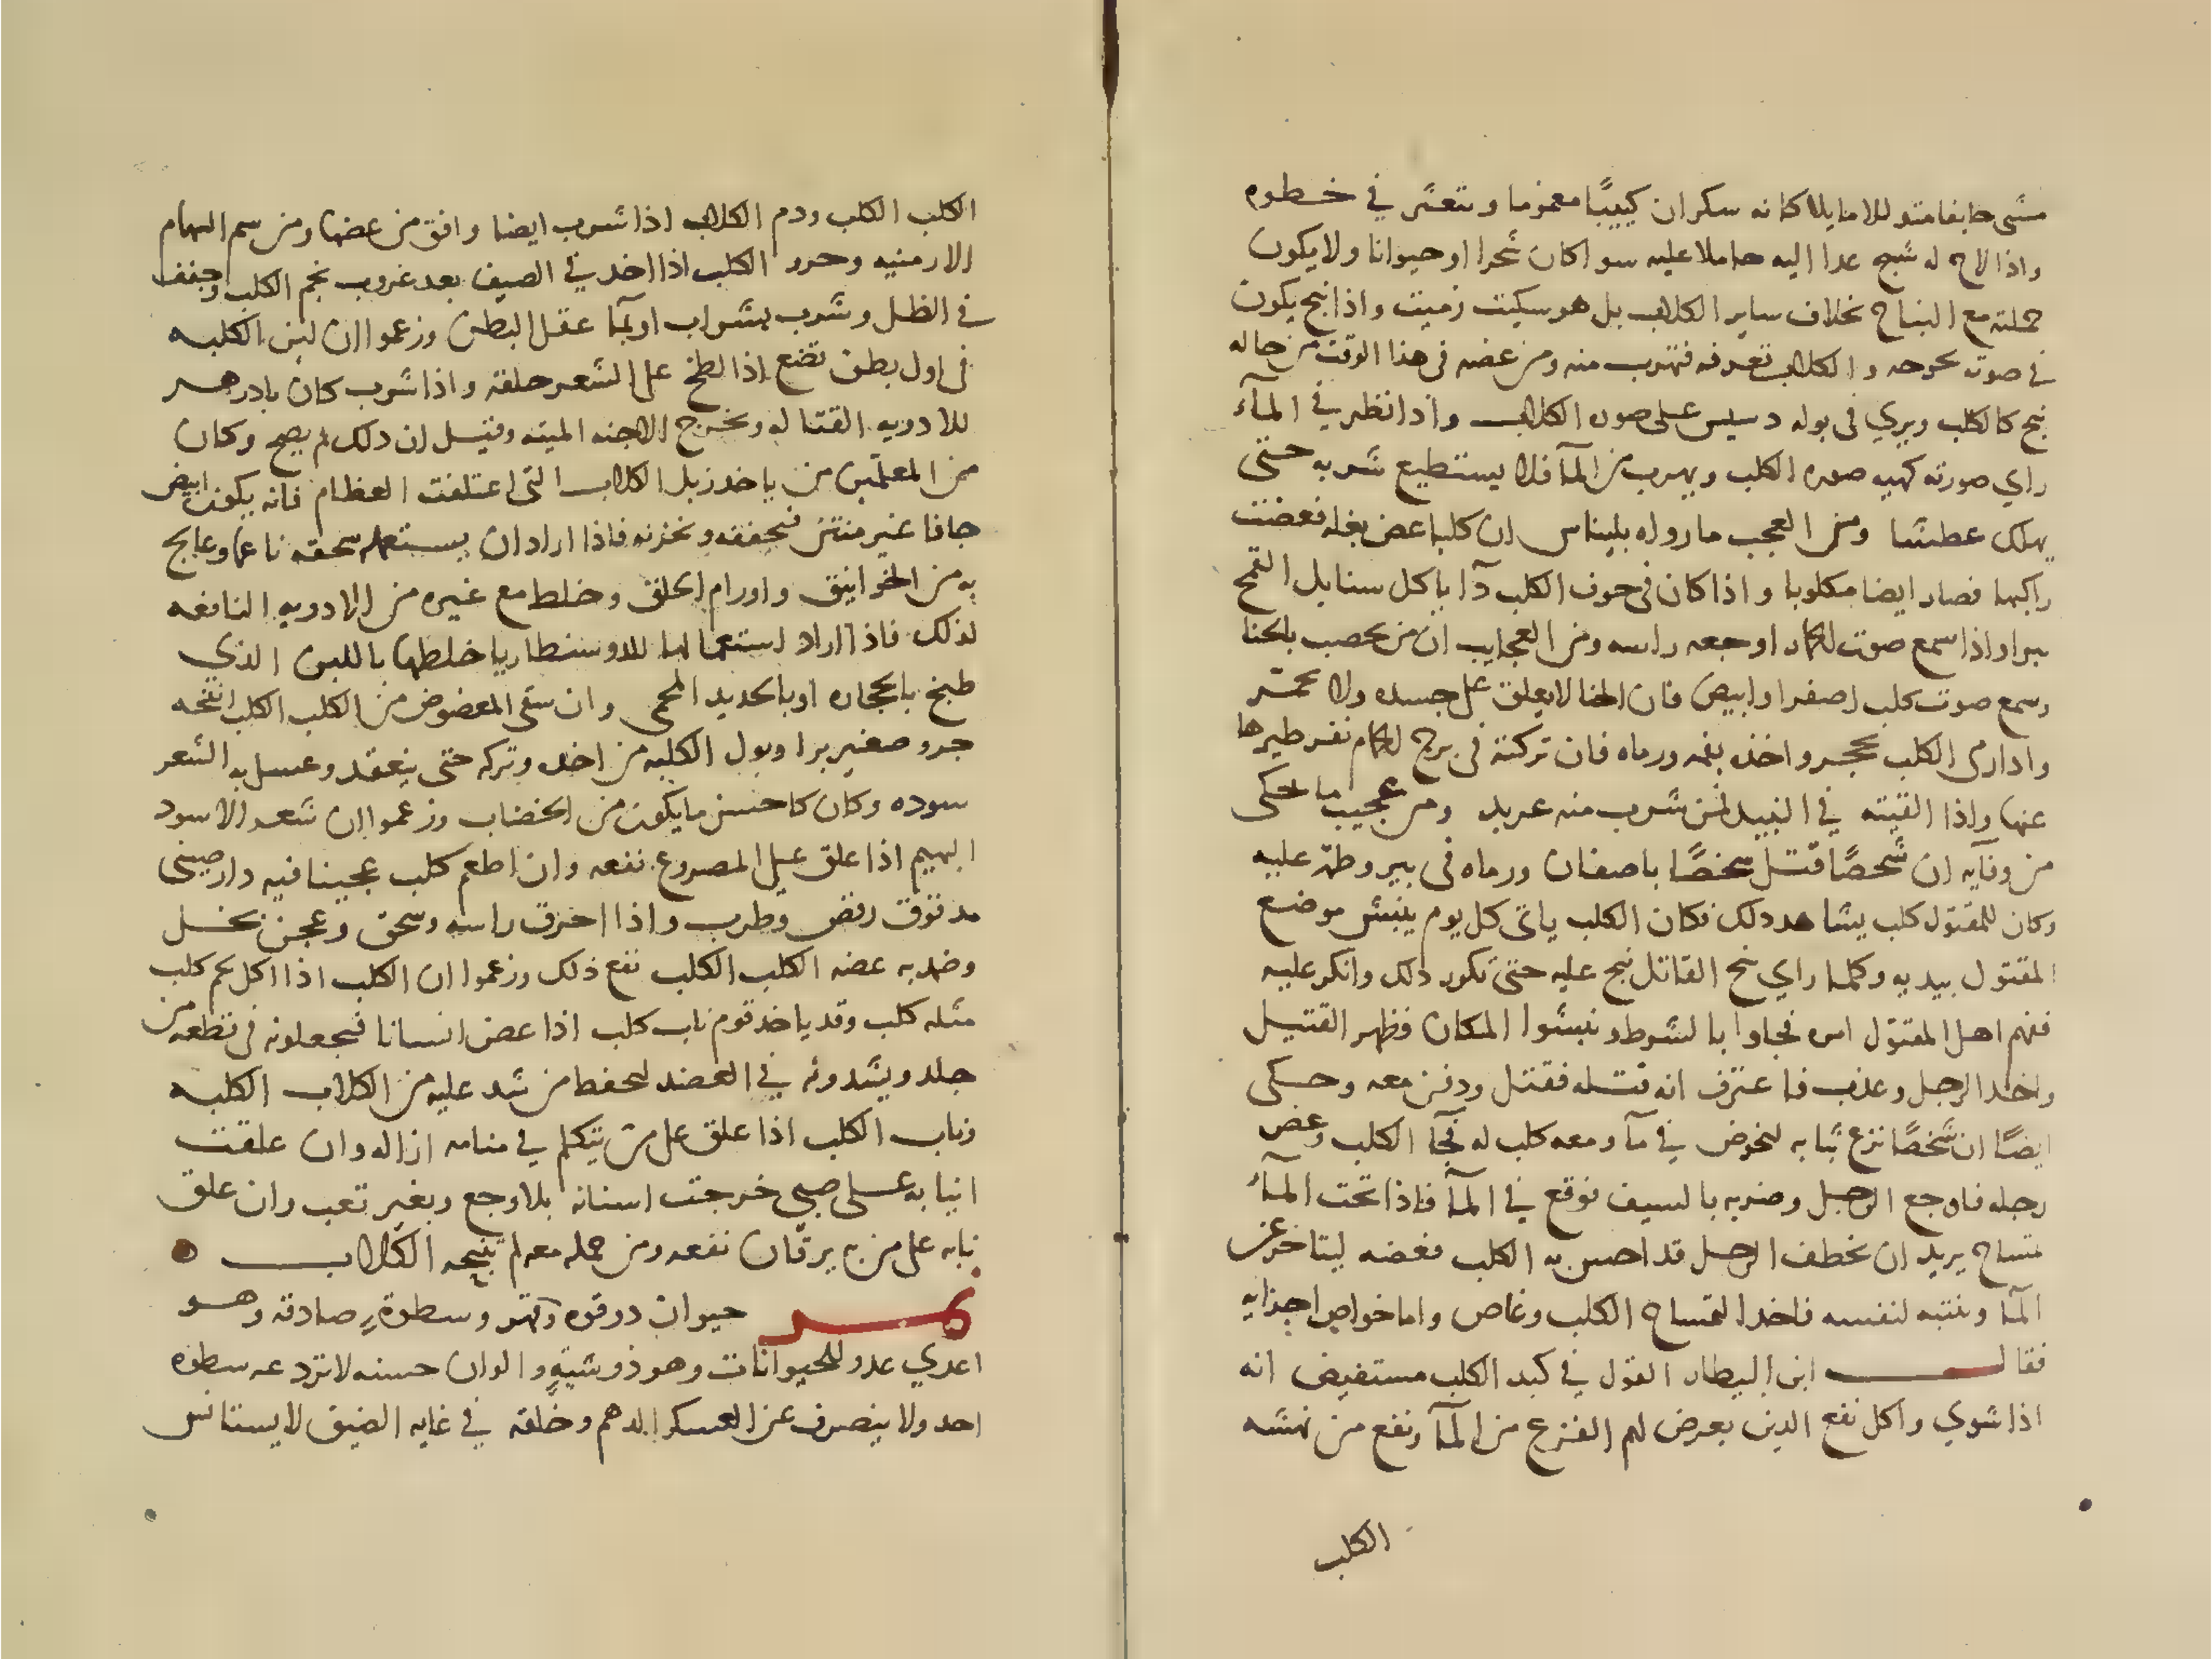 مشى خايفا متوللا مايلا كانه سكران كييبًا مغموما ويتعثر في خطوه
واذا لاح له شبح عدا اليه حاملا عليه سوا كان شجرا او حيوانا ولا يكون
حملته مع النباح بخلاف ساير الكلاب بل هو سكيت زميت واذا نبح يكون
في صوته بحوحه والكلاب تعرفه فتهرب منه ومن عضه في هذا الوقت من حاله
نبح كالكلب ويري في بوله دسيس على صوره الكلاب واذا نظر في المآء
راي صورته كهيه صوره الكلب ويهرب من المآ فلا يستطيع شربه حتى
يهلك عطشا ومن العجب ما رواه بليناس ان كلبا عض بغله فعضت
راكبها فصار ايضا مكلوبا واذا كان في جوف الكلب دآ ياكل سنابل القمح
يبرا واذا سمع صوت اوجعه راسه ومن العجايب ان من يخصب بالحنا
وسمع صوت كلب اصفر او ابيض فان الحنا لا يعلق على جسده ولا يحمر
واذا رمى الكلب بحجر واخذه بفمه ورماه فان تركته في برج الحمام نفر طيرها
عنها واذا القيته في النبيد فمن شرب منه عربد ومن عجيب ما يحكى
من وفآيه ان شخصًا قتل شخصًا باصفهان ورماه في بير وطم عليه
وكان للمقتول كلب يشاهد دلك فكان الكلب ياتى كل يوم ينبش موضع
المقتول بيديه وكلما راي نبح القاتل نبح عليه حتى تكرر دلك وانكر عليه
ففهم اهل المقتول امره فجاوا بالشرط ونبشوا المكان فظهر القتيل
واخد الرجل وعذب فاعترف انه قتله فقتل ودفن معه وحكى
ايضًا ان شخصًا نزع ثيابه ليخوض في مآ ومعه كلب له فجآ الكلب وعض
رجله فاوجع الرجل وضربه بالسيف فوقع في المآ فاذا تحت المآء
تمساح يريد ان يخطف الرجل قد احس به الكلب فعضه ليتاخر عن
المآ وينتبه لنفسه فاخد التمساح الكلب وغاص واما خواص اجزايه
فقال ابن البيطار القول في كبد الكلب مستفيض انه
اذا شوي واكل نفع الدين يعرض لهم الفزع من المآ ونفع من نهشه
الكلب
الكلب الكلب ودم الكلاب اذا شرب ايضا وافق من عضها ومن سم السهام
الارمنيه وخرو الكلب اذا اخد في الصيف بعد غروب نجم الكلب وجفف
في الظل وشرب بشراب او بمآ عقل البطن وزعموا ان لبن الكلبه
في اول بطن تضع اذا لطخ على الشعر حلقه واذا شرب كان بادزهر
للادويه القتاله ويخرج الاجنه الميته وقيل ان دلك لم يصح وكان
من المعلمين من ياخد زبل الكلاب التى اعتلفت العظام فانه يكون ابيض
جافا غير منتن فيجففه ويخزنه فاذا اراد ان يستعمله سحقه ناعما وعالج
به من الخوانيق واورام الحلق وخلط مع غيره من الادويه النافعه
لذلك فاذا اراد استعمالها للدوسنطاريا خلطها باللبن الذي
طبخ بالحجاره او بالحديد المحمى وان سقى المعضوض من الكلب الكلب انفحه
جرو صغير برا وبول الكلبه من اخده وتركه حتى ينعقد وغسل به الشعر
سوده وكان كاحسن ما يكون من الخضاب وزعموا ان شعر الاسود
البهيم اذا علق على المصروع نفعه وان اطعم كلب عجينا فيه دارصينى
مدقوق رقص وطرب واذا احرق راسه وسحق وعجن بخل
وضمد به عضه الكلب الكلب نفع ذلك وزعموا ان الكلب اذا اكل لحم كلب
مثله كلب وقد ياخد قوم ناب كلب اذا عض انسانا فيجعلونه في قطعه من
جلد ويشدونه في العضد ليحفظ من شد عليه من الكلاب الكلبه
وناب الكلب اذا علق على من يتكلم في منامه ازاله وان علقت
انيابه على صبي خرجت اسنانه بلا وجع وبغير تعب وان علق
نابه على من به يرقان نفعه ومن حمله معه لم تنبحه الكلاب
نمر حيوان دو قوه وقهر وسطوةٍ صادقه وهو
اعدي عدو للحيوانات وهو ذو شيةٍ والوان حسنه لا تردعه سطوه
احد ولا ينصرف عن العسكر الدهم وخلقه في غايه الضيق لا يستانس